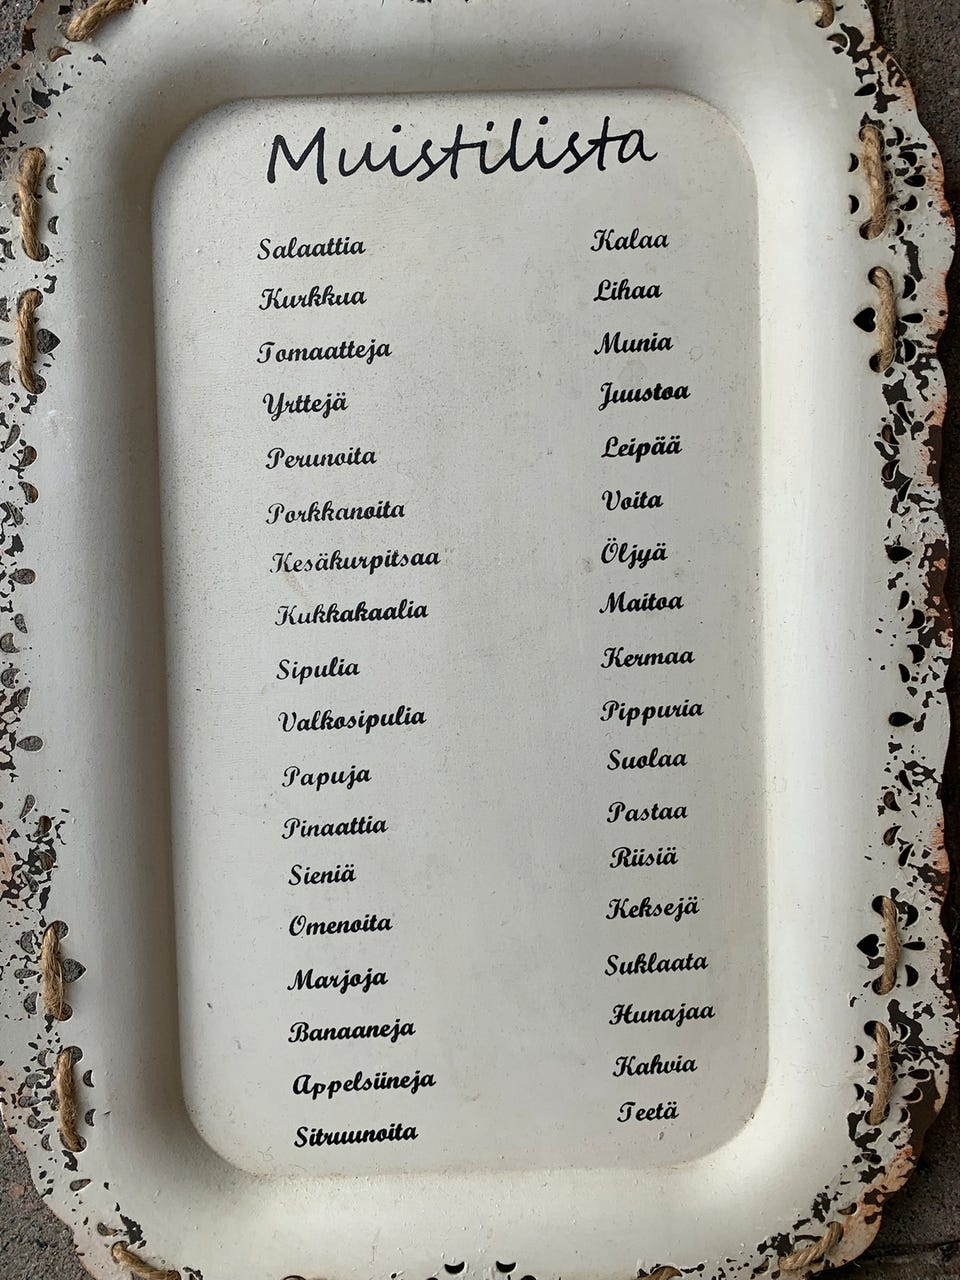 Muistilista
Salaattia
Kurkkua
Tomaatteja
Yrttejä
Perunoita
Porkkanoita
Kesäkurpitsaa
Kukkakaalia
Sipulia
Valkosipulia
Papuja
Pinaattia
Sieniä
Omenoita
Marjoja
Banaaneja
Appelsiineja
Sitruunoita
Kalaa
Lihaa
Munia
Juustoa
Leipää
Voita
Öljyä
Maitoa
Kermaa
Pippuria
Suolaa
Pastaa
Riisiä
Keksejä
Suklaata
Hunajaa
Kahvia
Teetä